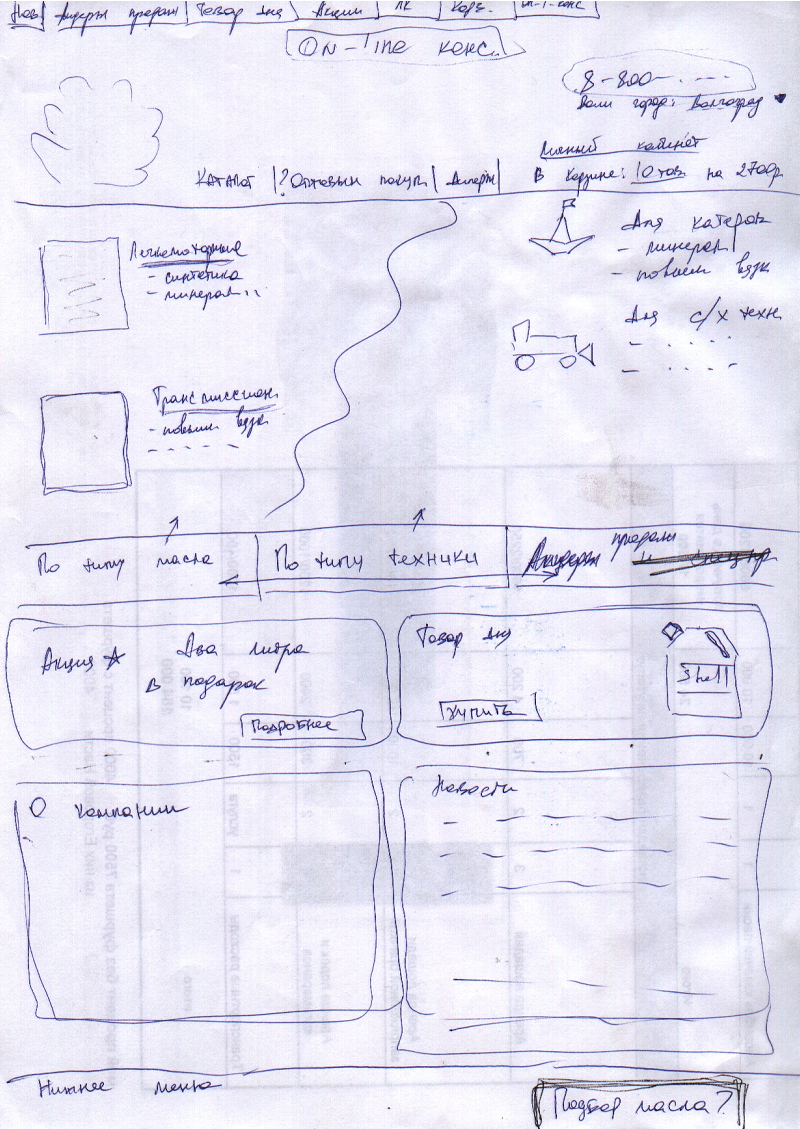 Нов. Лидеры продаж Товар дня Акции ЛК Корз. on-l-конс
On-line конс.
8-800-. - - -
Ваш город: Волгоград
Личный кабинет
В корзине: 10 тов. на 2700р
Каталог | ? Оптовым покуп. | Дилеры |
Легкомоторные
- синтетика
- минерал..
Для катеров
- минерал
- повыш вязк
Для с/х техн.
Трансмиссион.
- повыш вязк
По типу масла
По типу техники
Лидеры продаж
Акция Два литра
в подарок
Подробнее
Товар дня
Shell
купить
О компании
Новости
Нижнее меню
Подбор масла?